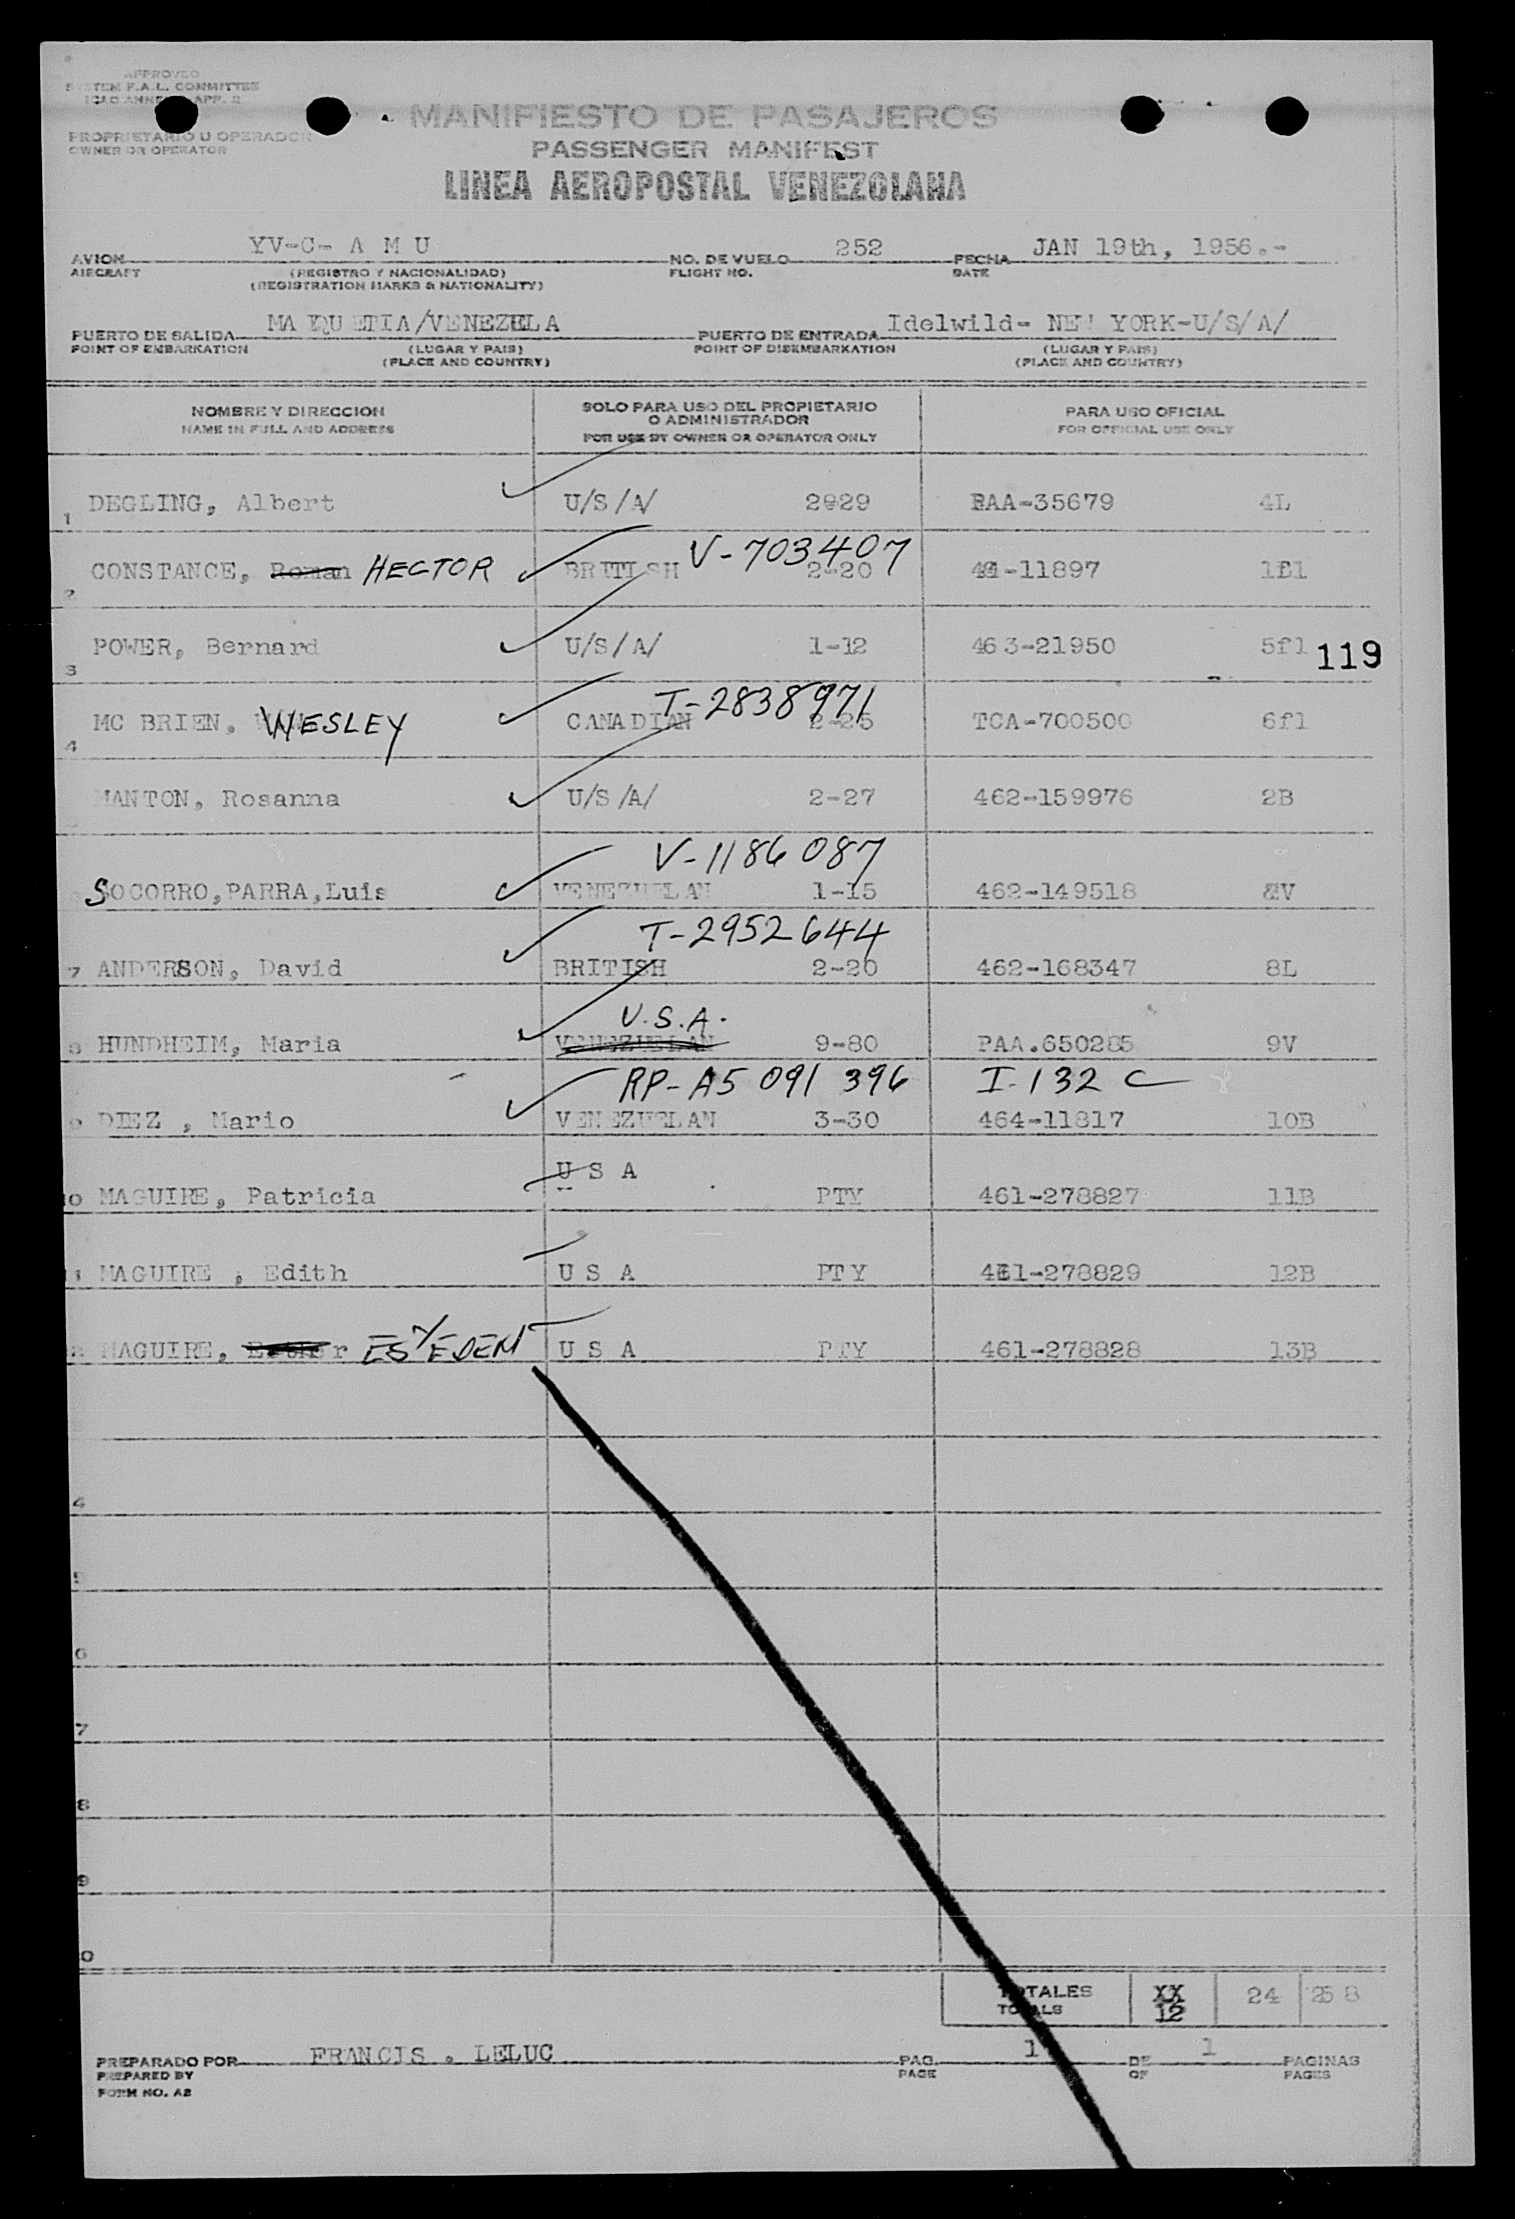 APPROVED
SYSTEM F.A.L. COMMITTEE
ICAO ANNEX APP. 2
PROPRIETARIO U OPERADOR
OWNER OR OPERATOR
MANIFIESTO DE PASAJEROS
PASSENGER MANIFEST
LINEA AEROPOSTAL VENEZOLANA
AVION YV-C- A M U NO. DE VUELO 252 FECHA JAN 19th, 1956.-
AIRCRAFT (REGISTRO Y NACIONALIDAD) FLIGHT NO. DATE
(REGISTRATION MARKS & NATIONALITY)
PUERTO DE SALIDA MAIQUETIA/VENEZELA PUERTO DE ENTRADA Idelwild- NEW YORK-U/S/A/
POINT OF EMBARKATION (LUGAR Y PAIS) POINT OF DISEMBARKATION (LUGAR Y PAIS)
(PLACE AND COUNTRY) (PLACE AND COUNTRY)
NOMBRE Y DIRECCION SOLO PARA USO DEL PROPIETARIO PARA USO OFICIAL
O ADMINISTRADOR
NAME IN FULL AND ADDRESS FOR USE BY OWNER OR OPERATOR ONLY FOR OFFICIAL USE ONLY
1 DEGLING, Albert U/S/A/ 2-29 PAA-35679 4L
V-703407
2 CONSTANCE, Roman HECTOR BRITISH 2-20 -11897
3 POWER, Bernard U/S/A/ 1-12 463-21950 5f1 119
T-2838971
4 MC BRIEN, WESLEY CANADIAN 2-26 TCA-700500 6f1
MANTON, Rosanna U/S/A/ 2-27 462-159976 2B
V-1186087
SOCORRO,PARRA,Luis VENEZUELAN 1-15 462-149518
T-2952644
7 ANDERSON, David BRITISH 2-20 462-168347 8L
U.S.A.
8 HUNDHEIM, Maria VENEZUELAN 9-80 PAA.650285 9V
RP-A5 091 396 I-132 C
9 DIEZ , Mario VENEZUELAN 3-30 464-11817 10B
U S A
10 MAGUIRE, Patricia PTY 461-278827 11B
11 MAGUIRE , Edith U S A PTY 461-278829 12B
MAGUIRE, U S A PTY 461-278828 13B
4
5
6
7
8
9
0
TOTALES XX 24 258
TOTALS 12
PREPARADO POR FRANCIS . LELUC PAG. 1 DE 1 PAGINAS
PREPARED BY PAGE OF PAGES
FORM NO. A2